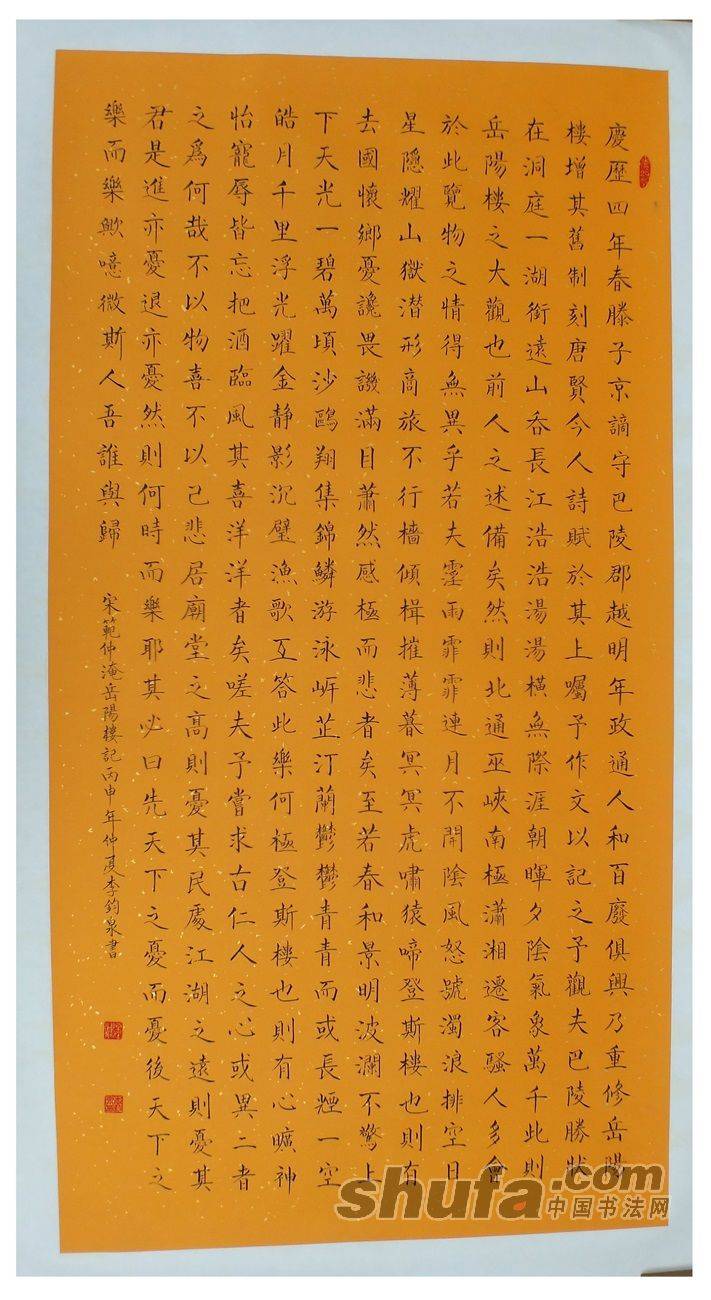 慶歷四年春滕子京謫守巴陵郡越明年政通人和百廢俱興乃重修岳陽
樓增其舊制刻唐賢今人詩賦於其上囑予作文以記之予觀夫巴陵勝狀
在洞庭一湖銜遠山吞長江浩浩湯湯橫無際涯朝暉夕陰氣象萬千此則
岳陽樓之大觀也前人之述備矣然則北通巫峽南極瀟湘遷客騷人多會
於此覽物之情得無異乎若夫霪雨霏霏連月不開陰風怒號濁浪排空日
星隱耀山嶽潛形商旅不行檣傾楫摧薄暮冥冥虎嘯猿啼登斯樓也則有
去國懷鄉憂讒畏譏滿目蕭然感極而悲者矣至若春和景明波瀾不驚上
下天光一碧萬頃沙鷗翔集錦鱗游泳岍芷汀蘭鬱鬱青青而或長煙一空
皓月千里浮光躍金静影沉璧漁歌互答此樂何極登斯樓也則有心曠神
怡寵辱皆忘把酒臨風其喜洋洋者矣嗟夫予嘗求古仁人之心或異二者
之為何哉不以物喜不以己悲居廟堂之高則憂其民處江湖之遠則憂其
君是進亦憂退亦憂然則何時而樂耶其必曰先天下之憂而憂後天下之
樂而樂歟噫微斯人吾誰與歸
宋範仲淹岳陽樓記丙申年仲夏李鈞泉書
shufa.com
中国书法网